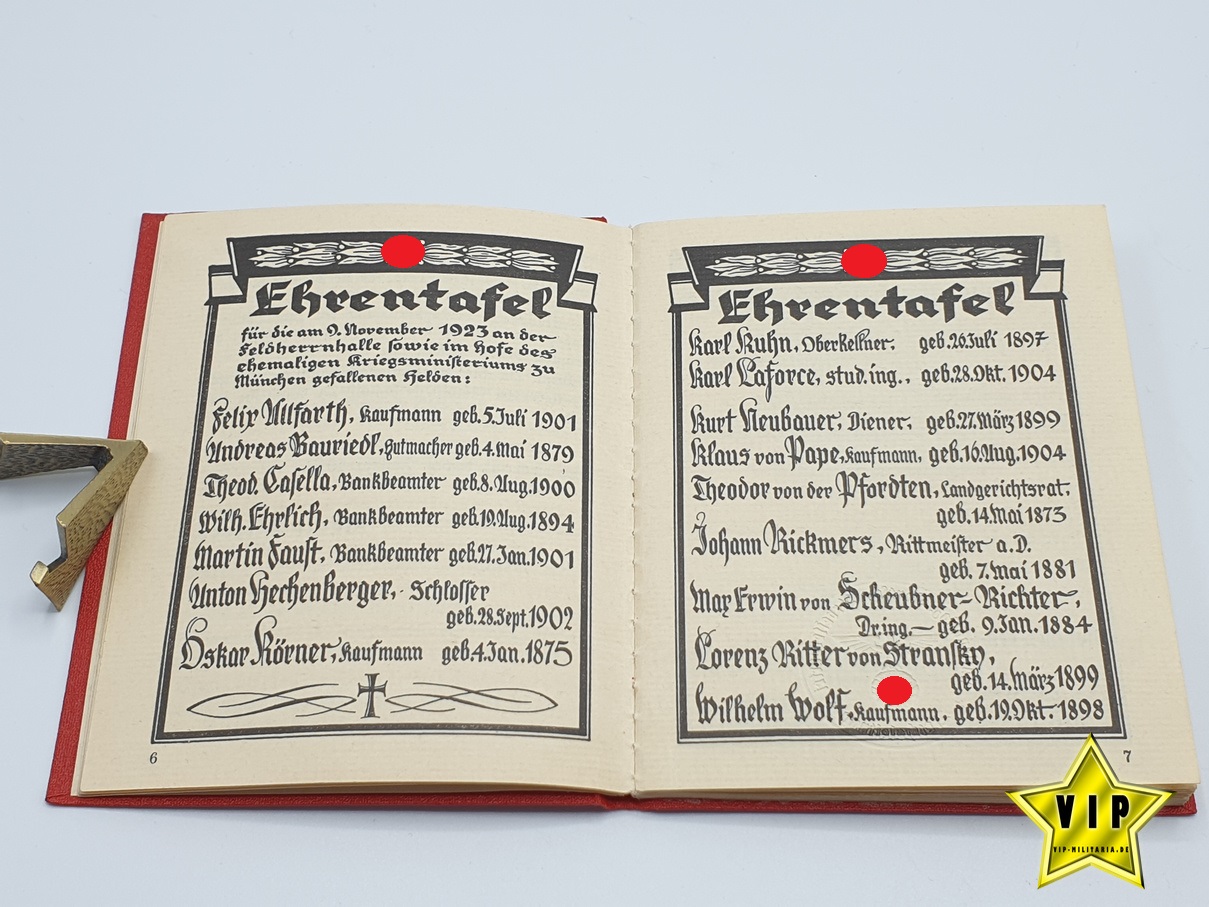 Ehrentafel
für die am 9. November 1923 an der
Feldherrnhalle sowie im Hofe des
ehemaligen Kriegsministeriums zu
München gefallenen Helden:
Felix Allfarth, Kaufmann geb. 5. Juli 1901
Andreas Bauriedl, Hutmacher geb. 4. Mai 1879
Theod. Casella, Bankbeamter geb. 8. Aug. 1900
Wilh. Ehrlich, Bankbeamter geb. 19. Aug. 1894
Martin Faust, Bankbeamter geb. 27. Jan. 1901
Anton Hechenberger, Schlosser
geb. 28. Sept. 1902
Oskar Körner, Kaufmann geb. 4. Jan. 1875
6
Ehrentafel
Karl Kuhn, Oberkellner, geb. 26. Juli 1897
Karl Laforce, stud. ing., geb. 28. Okt. 1904
Kurt Neubauer, Diener, geb. 27. März 1899
Klaus von Pape, Kaufmann, geb. 16. Aug. 1904
Theodor von der Pfordten, Landgerichtsrat,
geb. 14. Mai 1873
Johann Rickmers, Rittmeister a. D.
geb. 7. Mai 1881
Max Erwin von Scheubner-Richter,
Dr. ing. – geb. 9. Jan. 1884
Lorenz Ritter von Stransky,
geb. 14. März 1899
Wilhelm Wolf, Kaufmann, geb. 19. Okt. 1898
7
VIP
VIP-MILITARIA.DE